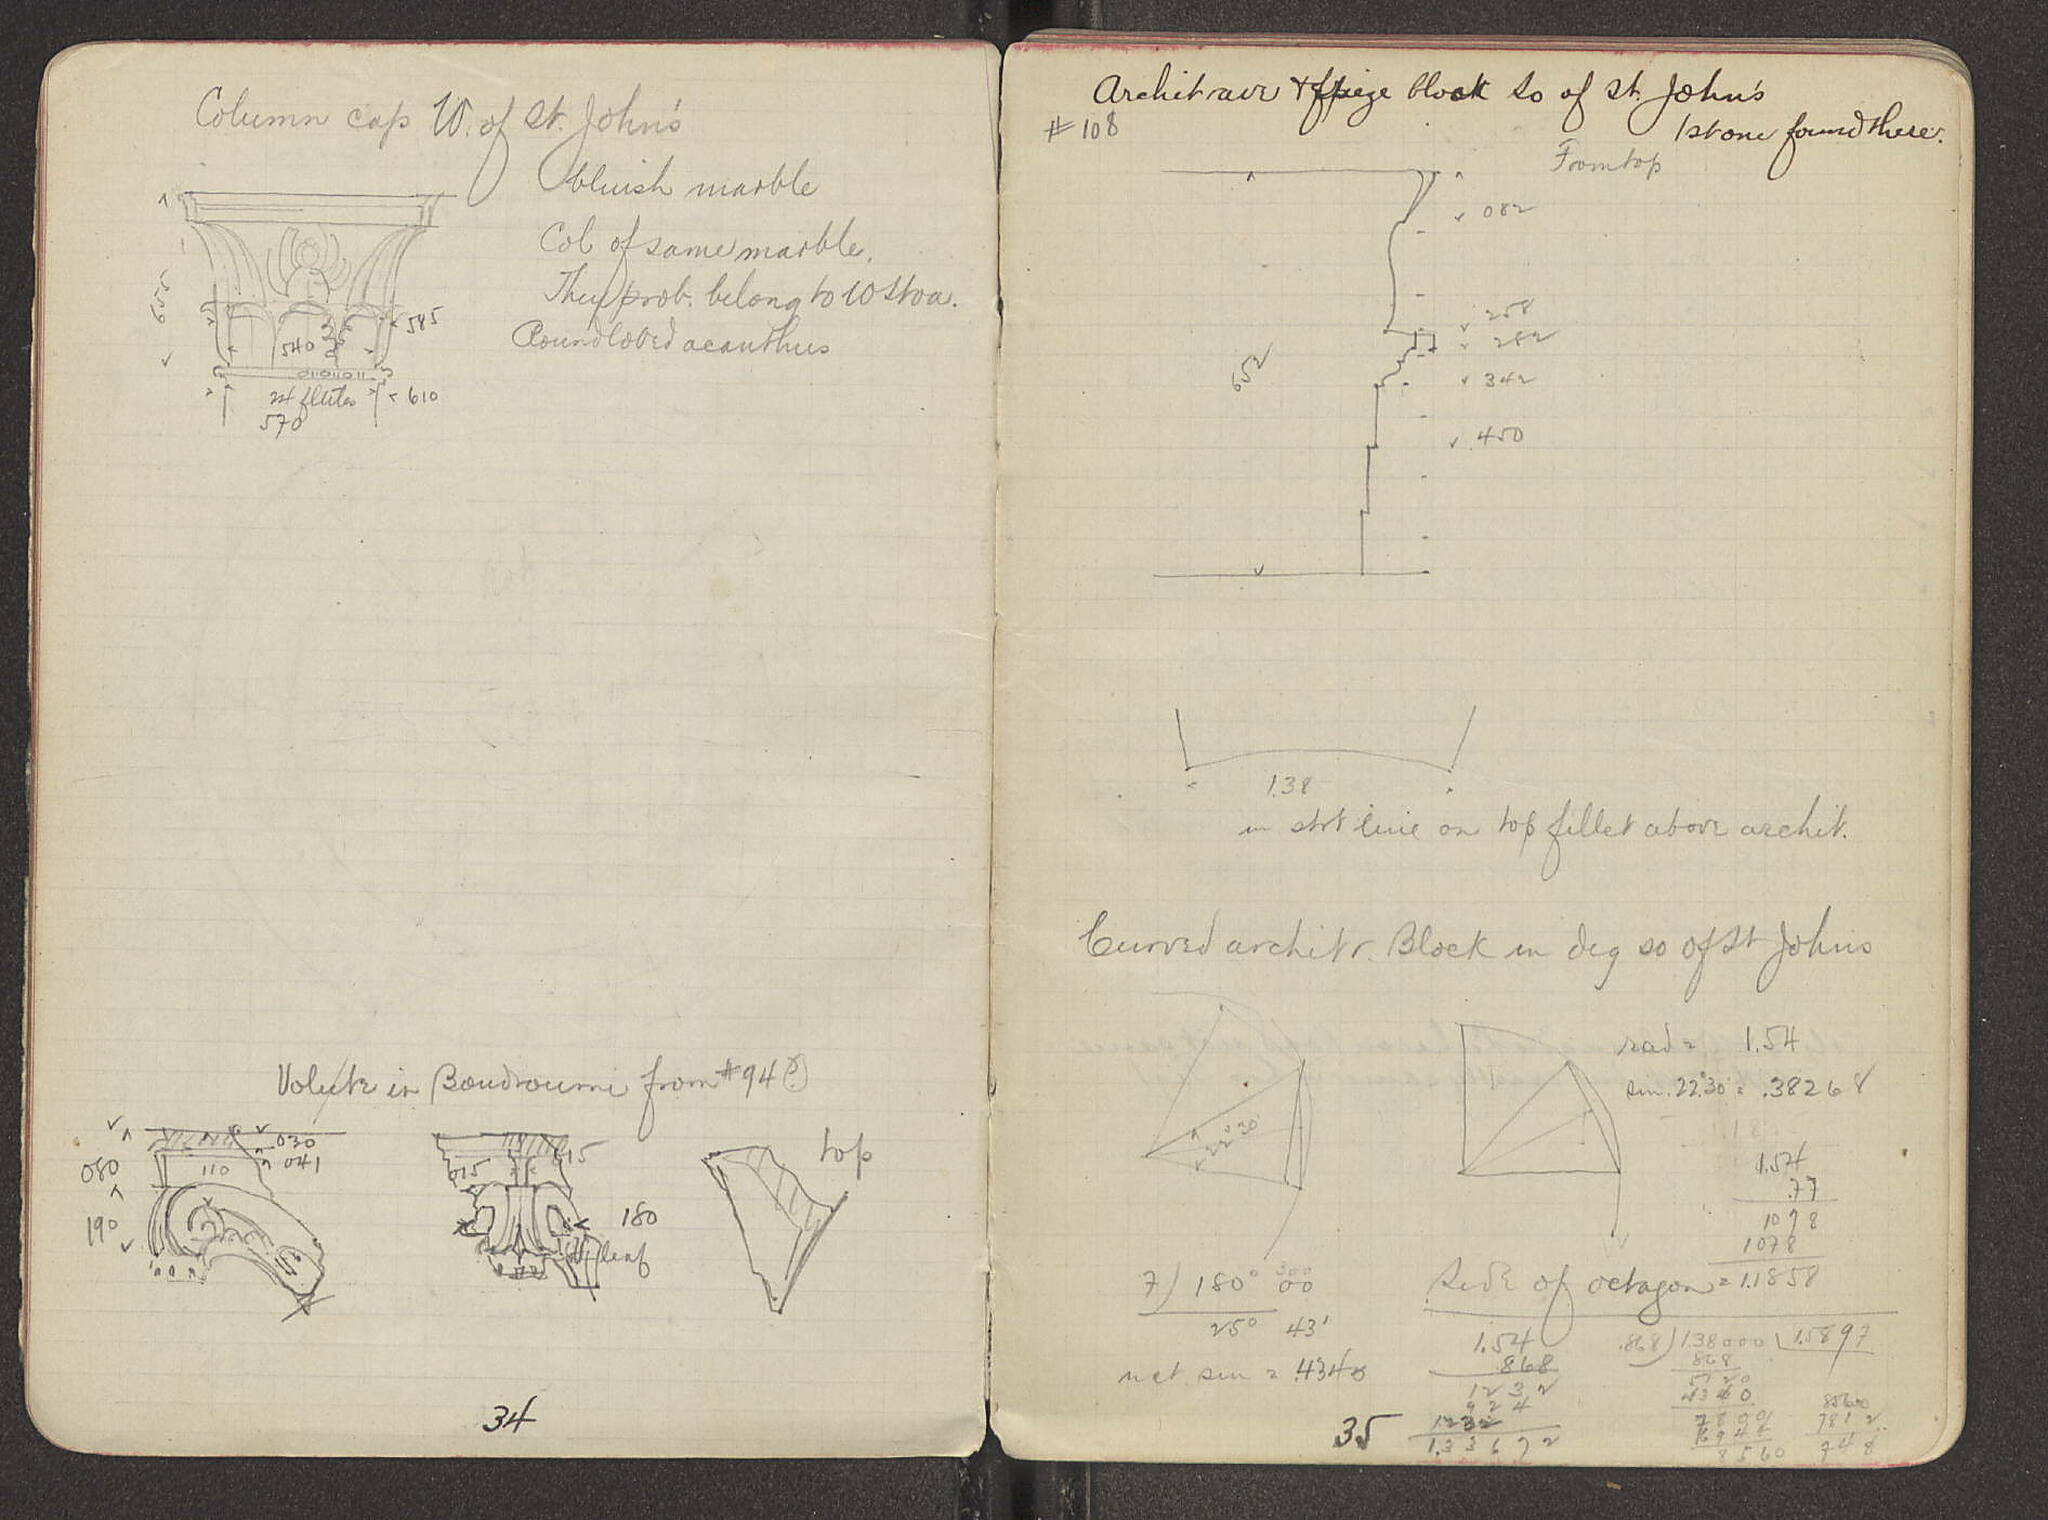 Column cap W. of St. John's
bluish marble
Col of same marble.
They prob. belong to W Stoa.
Roundlobed acanthus
655
585
540
24 flutes
610
570
Volute in Boudroumi from #94(?)
030
041
080
110
190
015
015
180
leaf
top
34
Architrave & frieze block So of St. John's
#108
1 stone found there.
From top
082
258
282
342
652
450
1.38
in strt line on top fillet above archit.
Curved architr. Block in deg so of St Johns
22°30'
rad = 1.54
sin. 22°30' = .38268
1.54
.77
1078
1078
Side of octagon = 1.1858
7) 180° 00
300
25° 43'
nat sin = .4340
1.54
868
1232
924
1232
1.33672
.868) 138000 1.5897
868
5120
4340
7800
6944
8560
8560
7812
748
35